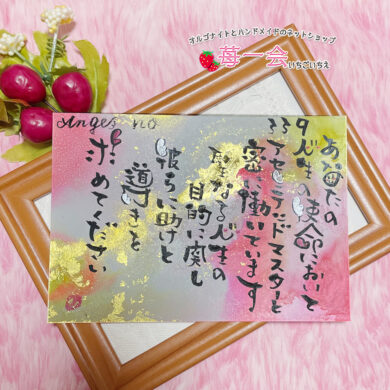 オルゴナイトとハンドメイドのネットショップ
苺一会
いちごいちえ
Angel no
33
あなたの
人生の使命において
アセンデッドマスターと
密に働いています
聖なる人生の
目的に関し
彼らに助けと
導きを
求めてください